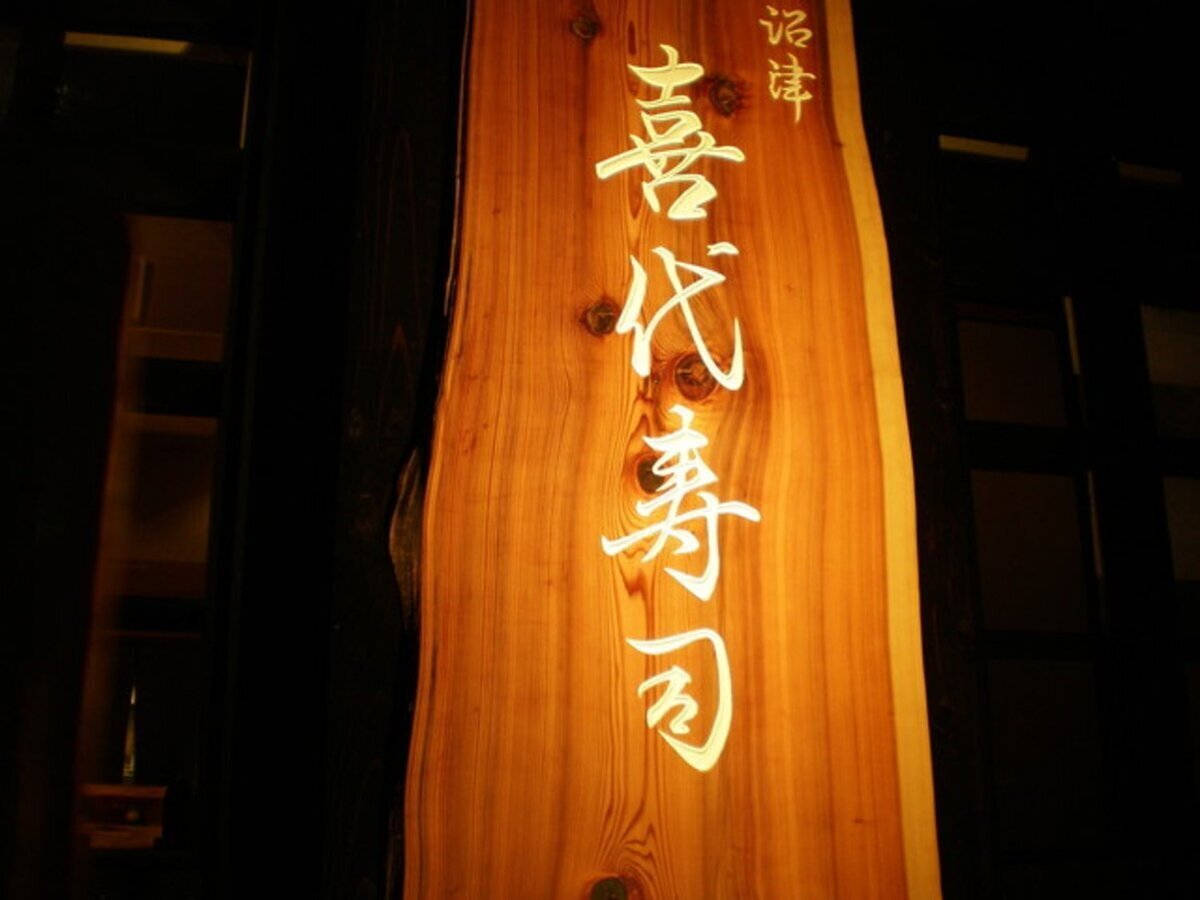 沼津
喜代寿司